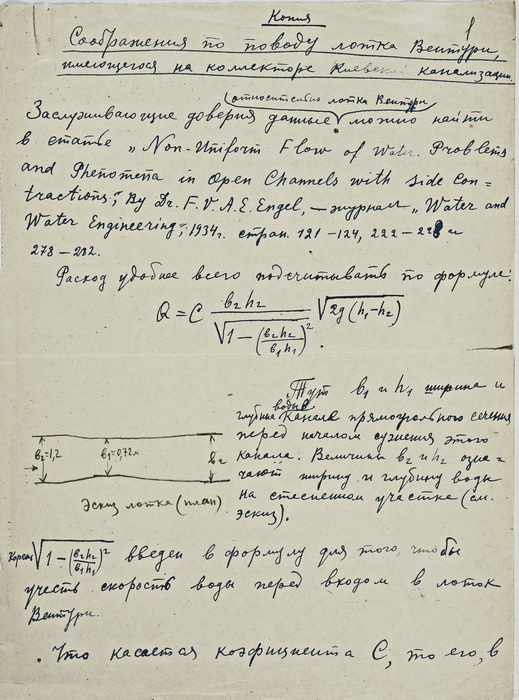 Копия
1
Соображения по поводу лотка Вентури,
имеющегося на коллекторе Киевской канализации.
относительно лотка Вентури
Заслуживающие доверия данные можно найти
в статье „Non-Uniform Flow of Water. Problems
and Phenomena in Open Channels with Side Con=
tractions“, By Dr. F.V.A.E. Engel, — журнал „Water and
Water Engineering“, 1934г. стран. 121–124, 222–228 и
278–282.
Расход удобнее всего подсчитывать по формуле:
Q = C b₂h₂ / √(1 – (b₂h₂ / b₁h₁)²) √(2g (h₁–h₂))
Тут b₁ и h₁ ширина и
глубина воды канала прямоугольного сечения
перед началом сужения этого
канала. Величины b₂ и h₂ озна=
чают ширину и глубину воды
на стесненном участке (см.
эскиз).
b₁=1,2 b₁=0,72м b₂
Эскиз лотка (план)
Корень √(1 – (b₂h₂ / b₁h₁)²) введен в формулу для того, чтобы
учесть скорость воды перед входом в лоток
Вентури.
Что касается коэфициента C, то его, в